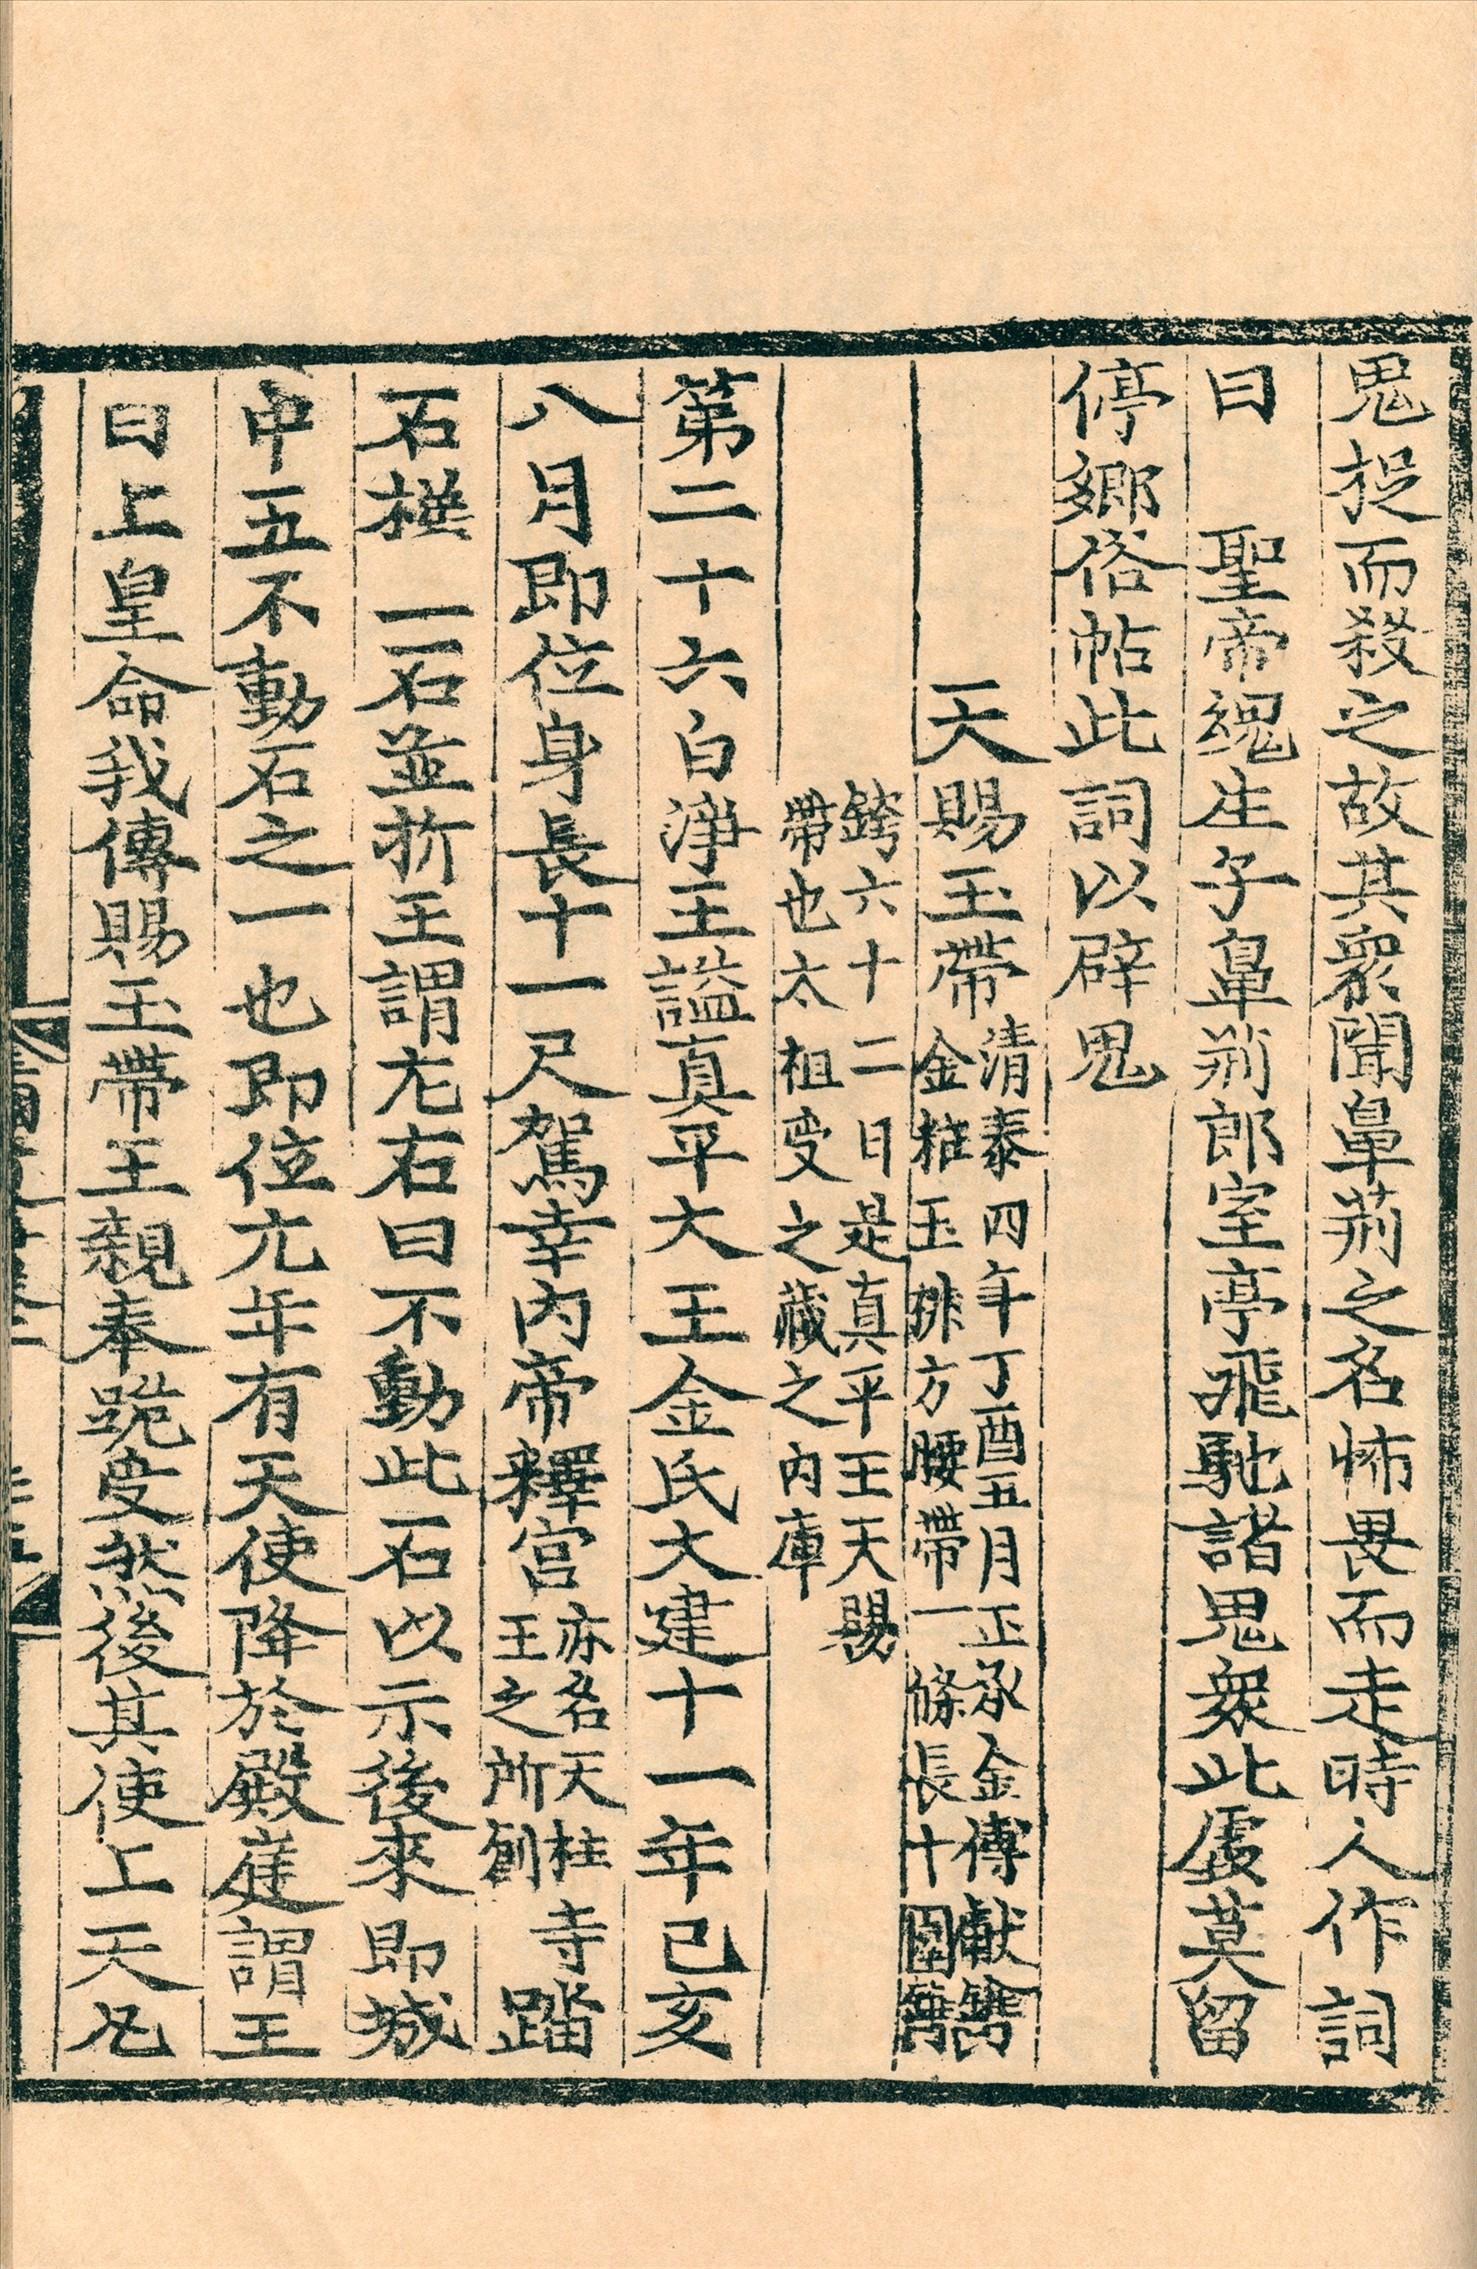 鬼捉而殺之故其衆聞鼻荊之名怖畏而走時人作詞
曰　聖帝魂生子鼻荊郎室亭飛馳諸鬼衆此處莫留
停鄉俗帖此詞以辟鬼
天賜玉帶
清泰四年丁酉五月正承金傅獻鐫
金粧玉排方腰帶一條長十圍鐫
銙六十二曰是真平王天賜
帶也太祖受之藏之內庫
第二十六白淨王謚真平大王金氏大建十一年己亥
八月即位身長十一尺駕幸內帝釋宮
亦名天柱寺
王之所創
踏
石橫一石並折王謂左右曰不動此石以示後來即城
中五不動石之一也即位元年有天使降於殿庭謂王
曰上皇命我傳賜玉帶王親奉跪受然後其使上天凡